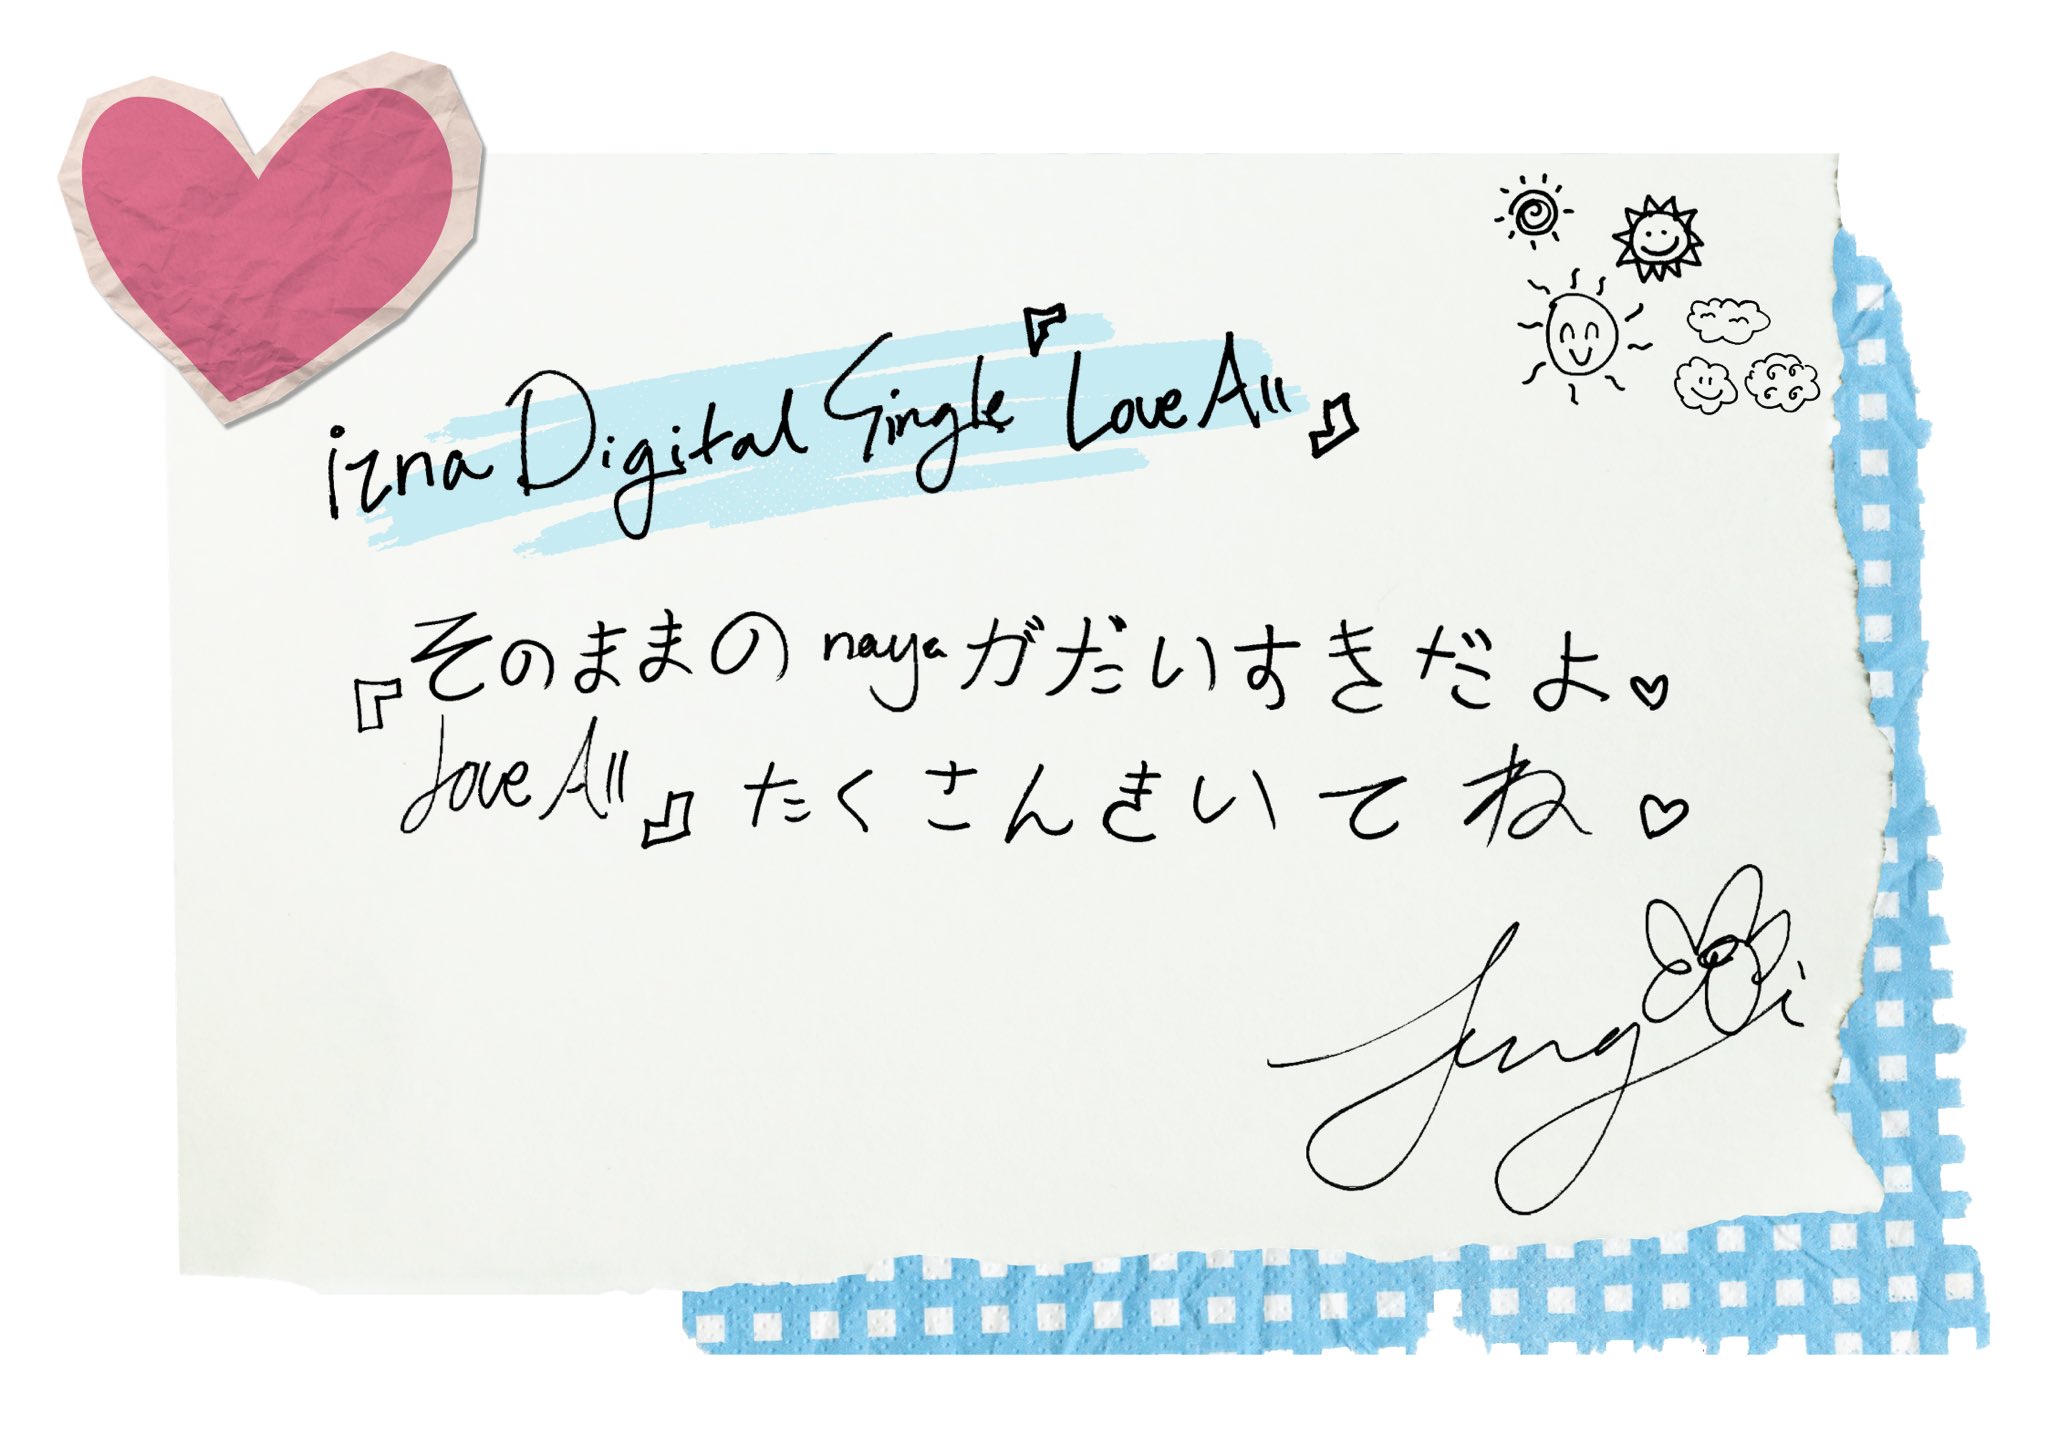 izna Digital Single『Love All』
そのままの nayaがだいすきだよ♡
『Love All』たくさんきいてね♡
Jungeі